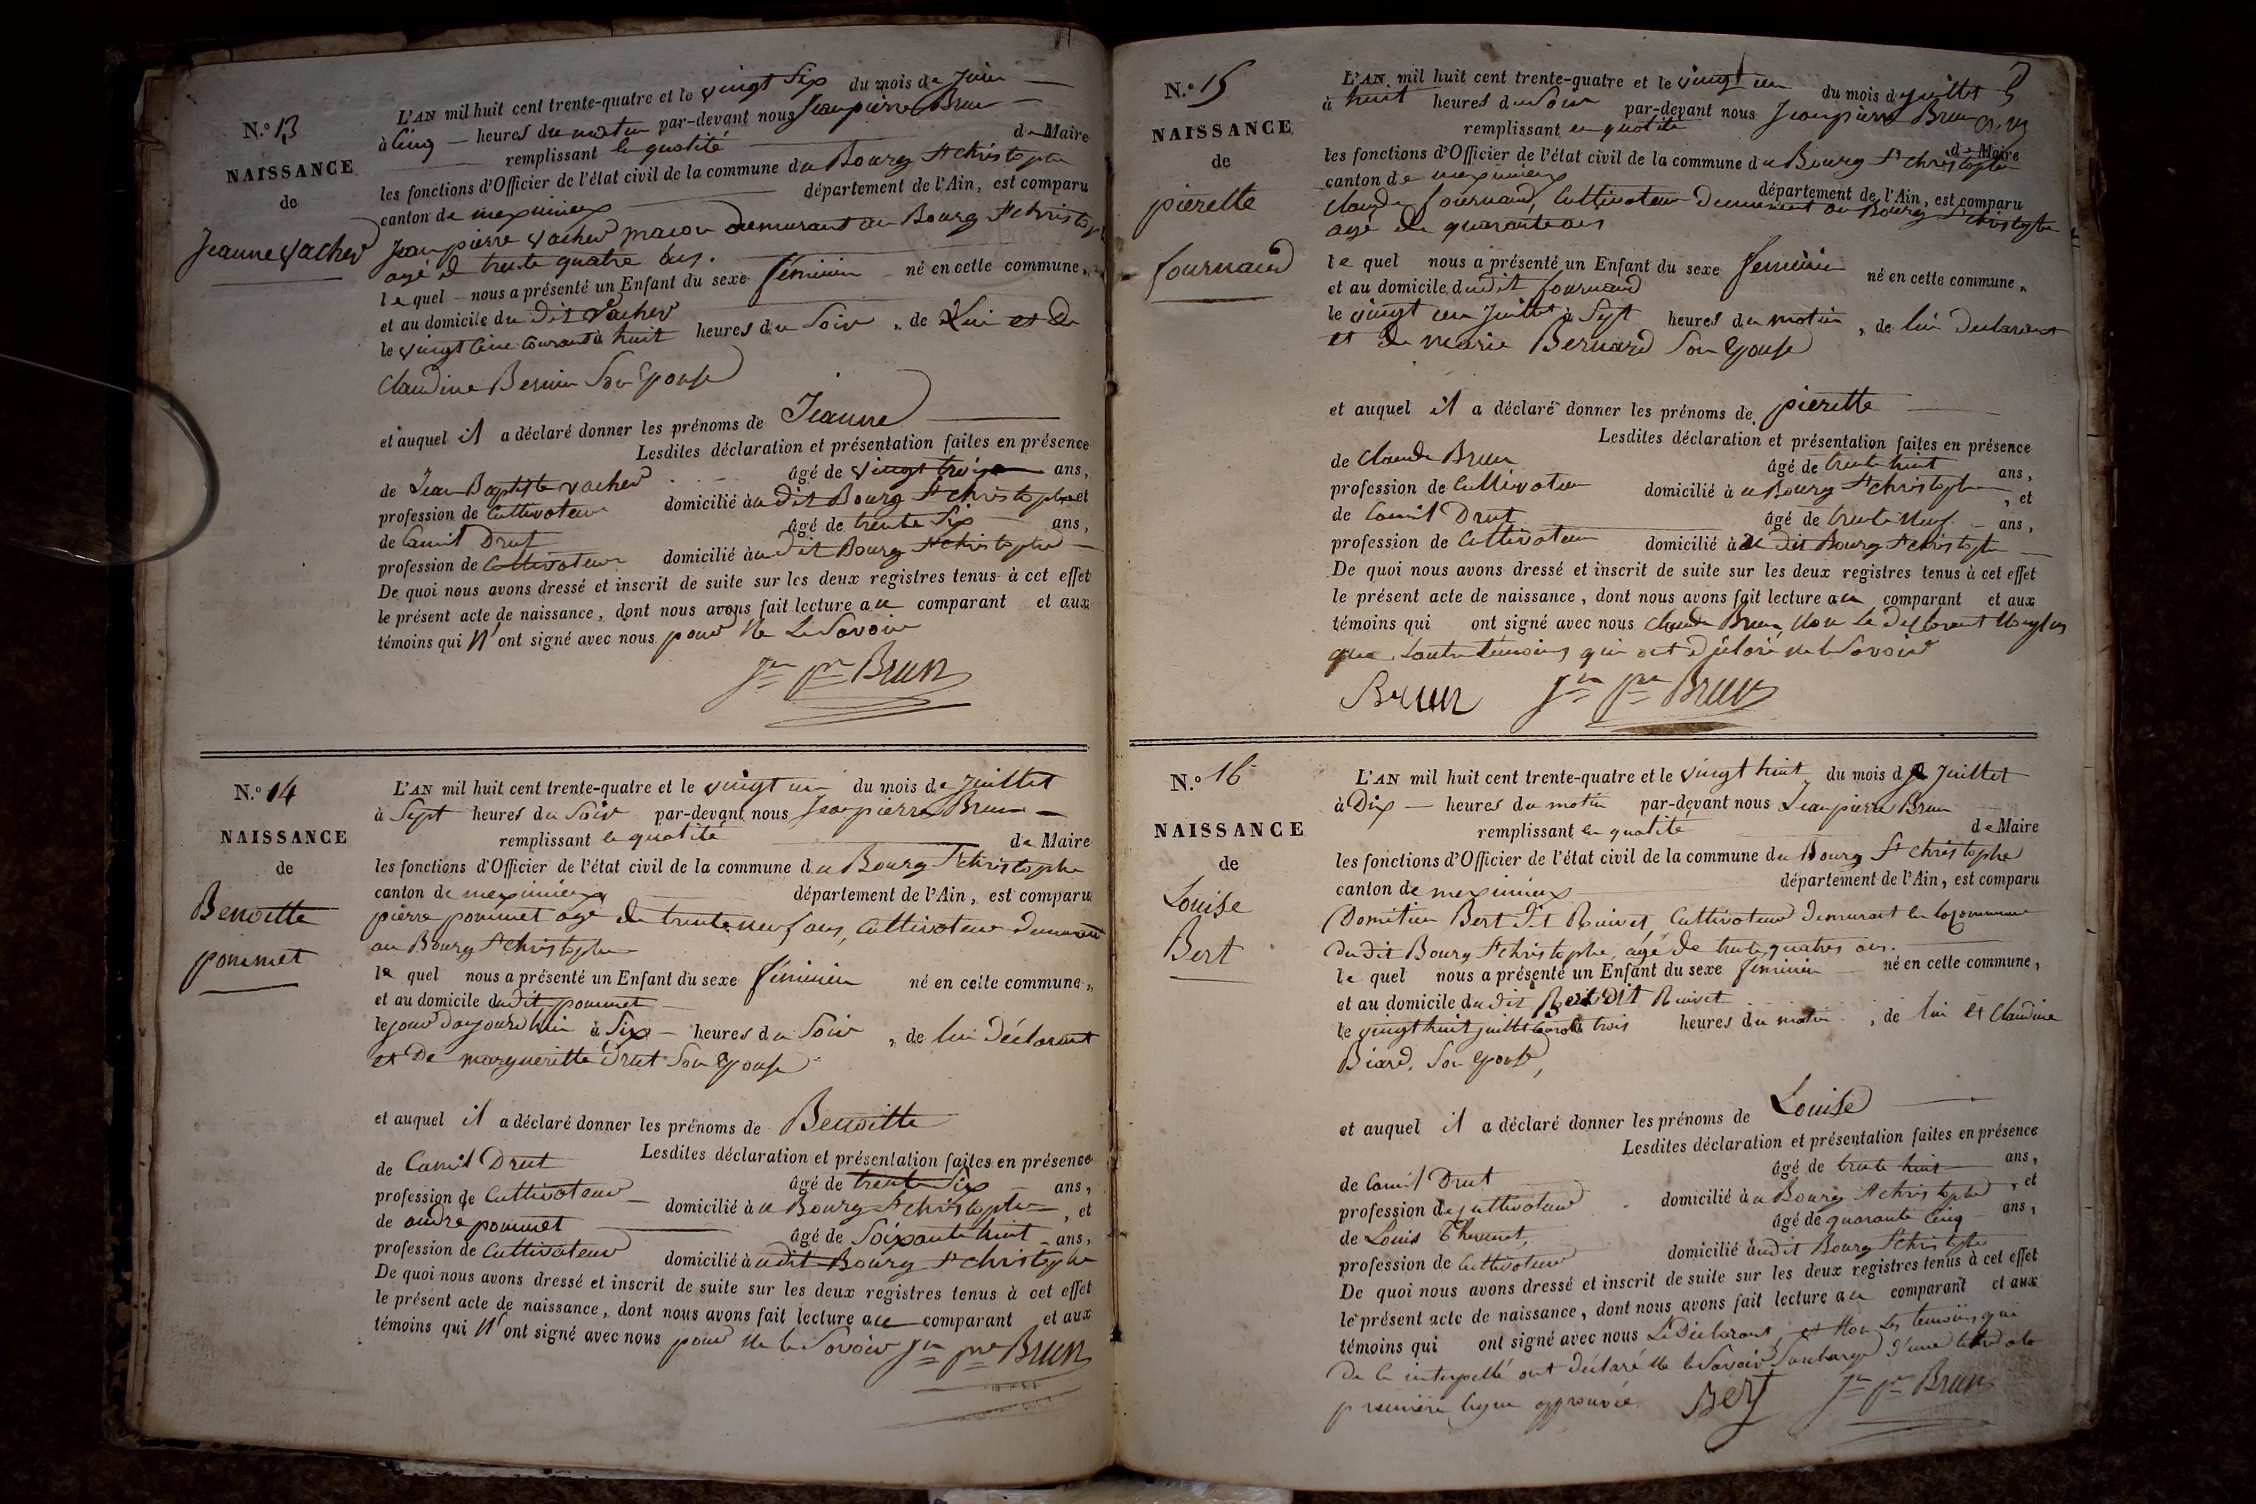 N.º 13
NAISSANCE
de
Jeanne Vacher
L'AN mil huit cent trente-quatre et le vingt six du mois de Juin
à Cinq heures du matin par-devant nous Jean pierre Brun
remplissant en qualité de Maire
les fonctions d'Officier de l'état civil de la commune du Bourg St christophe
canton de meximieux département de l'Ain, est comparu
Jean pierre Vacher macon demurant au Bourg St christophe
agé de trente quatre ans.
le quel nous a présenté un Enfant du sexe féminin né en cette commune,
et au domicile du dit Vacher
le vingt cinc courant à huit heures du Soir, de Lui et de
Claudine Bernin Son Epouse
et auquel il a déclaré donner les prénoms de Jeanne
Lesdites déclaration et présentation faites en présence
de Jean Baptiste Vacher âgé de vingt trois ans,
profession de Cultivateur domicilié au dit Bourg St christophe et
de Camil Drut âgé de trente Six ans,
profession de Cultivateur domicilié au dit Bourg St christophe
De quoi nous avons dressé et inscrit de suite sur les deux registres tenus à cet effet
le présent acte de naissance, dont nous avons fait lecture au comparant et aux
témoins qui N'ont signé avec nous pour Ne Le Savoir
Jn pre Brun
N.º 14
NAISSANCE
de
Benoitte
pommet
L'AN mil huit cent trente-quatre et le vingt un du mois de Juillet
à Sept heures du Soir par-devant nous Jean pierre Brun
remplissant en qualité de Maire
les fonctions d'Officier de l'état civil de la commune du Bourg St christophe
canton de meximieux département de l'Ain, est comparu
pierre pommet agé de trente neuf ans, Cultivateur demurant
au Bourg St christophe
le quel nous a présenté un Enfant du sexe féminin né en cette commune,
et au domicile dudit pommet
le jour d'aujourd'hui à Six heures du Soir, de lui déclarant
et De margueritte Drut Son Epouse
et auquel il a déclaré donner les prénoms de Benoitte
Lesdites déclaration et présentation faites en présence
de Camil Drut âgé de trente Six ans,
profession de Cultivateur domicilié au Bourg St christophe, et
de andré pommet âgé de Soixante huit ans,
profession de Cultivateur domicilié audit Bourg St christophe
De quoi nous avons dressé et inscrit de suite sur les deux registres tenus à cet effet
le présent acte de naissance, dont nous avons fait lecture au comparant et aux
témoins qui N'ont signé avec nous pour Ne le Savoir Jn pre Brun
N.º 15
NAISSANCE
de
pierette
fournand
L'AN mil huit cent trente-quatre et le vingt un du mois de Juillet
à huit heures du Soir par-devant nous Jean pierre Brun
remplissant en qualité de Maire
les fonctions d'Officier de l'état civil de la commune du Bourg St christophe
canton de meximieux département de l'Ain, est comparu
Claude fournand, Cultivateur Demurant au Bourg St christophe
agé de quarante ans
le quel nous a présenté un Enfant du sexe feminin né en cette commune,
et au domicile dudit fournand
le vingt un Juillet à Sept heures du matin, de lui Declarant
et de marie Bernard Son Epouse
et auquel il a déclaré donner les prénoms de pierette
Lesdites déclaration et présentation faites en présence
de Claude Brun âgé de trente huit ans,
profession de Cultivateur domicilié au Bourg St christophe, et
de Camil Drut âgé de trente Neuf ans,
profession de Cultivateur domicilié au dit Bourg St christophe
De quoi nous avons dressé et inscrit de suite sur les deux registres tenus à cet effet
le présent acte de naissance, dont nous avons fait lecture au comparant et aux
témoins qui ont signé avec nous Claude Brun, Non Le Declarant
que L'autre témoins qui ont déclaré ne le Savoir
Brun Jn pre Brun
N.º 16
NAISSANCE
de
Louise
Bert
L'AN mil huit cent trente-quatre et le vingt huit du mois de Juillet
à Dix heures du matin par-devant nous Jean pierre Brun
remplissant en qualité de Maire
les fonctions d'Officier de l'état civil de la commune du Bourg St christophe
canton de meximieux département de l'Ain, est comparu
Domitien Bert dit Ruivet, Cultivateur demurant en la commune
du dit Bourg St christophe, agé de trente quatres ans.
le quel nous a présenté un Enfant du sexe féminin né en cette commune,
et au domicile du dit Bert dit Ruivet
le vingt huit juillet à trois heures du matin, de lui et Claudine
Biard, Son Epouse,
et auquel il a déclaré donner les prénoms de Louise
Lesdites déclaration et présentation faites en présence
de Camil Drut âgé de trente huit ans,
profession de Cultivateur domicilié au Bourg St christophe, et
de Louis Thevenet, âgé de quarante cinq ans,
profession de Cultivateur domicilié audit Bourg St christophe
De quoi nous avons dressé et inscrit de suite sur les deux registres tenus à cet effet
le présent acte de naissance, dont nous avons fait lecture au comparant et aux
témoins qui ont signé avec nous Le Déclarant, et Non Les temoins qui
De ce interpellé ont déclaré Ne le Savoir Surcharge d'une lettre a la
premiere ligne approuvée. Bert Jn pre Brun